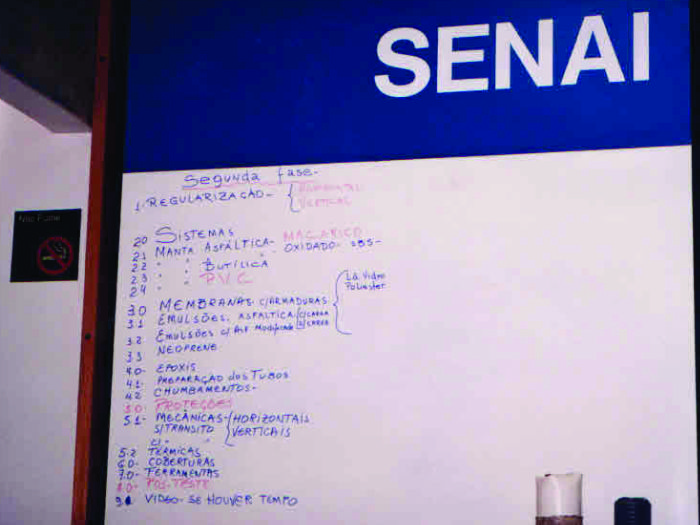 SENAI
Segunda fase-
1. REGULARIZAÇÃO- HORIZONTAL
VERTICAL
Não Fume
20 SISTEMAS
21 MANTA ASFÁLTICA- MAÇARICO
22 " " " OXIDADO- SBS-
23 " " BUTÍLICA
24 " " P.V.C
30 MEMBRANAS C/ARMADURAS
Lã Vidro
Poliester
3.1 EMULSÕES. ASFALTICA C/CARGA
S/CARGA
3.2 EMULSÕES C/ Asf. Modificado
3.3 NEOPRENE
4.0- EPOXIS
4.1- PREPARAÇÃO dos TUBOS
4.2 CHUMBAMENTOS-
5.0- PROTEÇÕES
5.1- MECÂNICAS- HORIZONTAIS
S/TRANSITO VERTICAIS
C/ " "
5.2 TÉRMICAS
6.0- COBERTURAS
7.0- FERRAMENTAS
8.0- PÓS-TESTE
9.0 VIDEO- SE HOUVER TEMPO